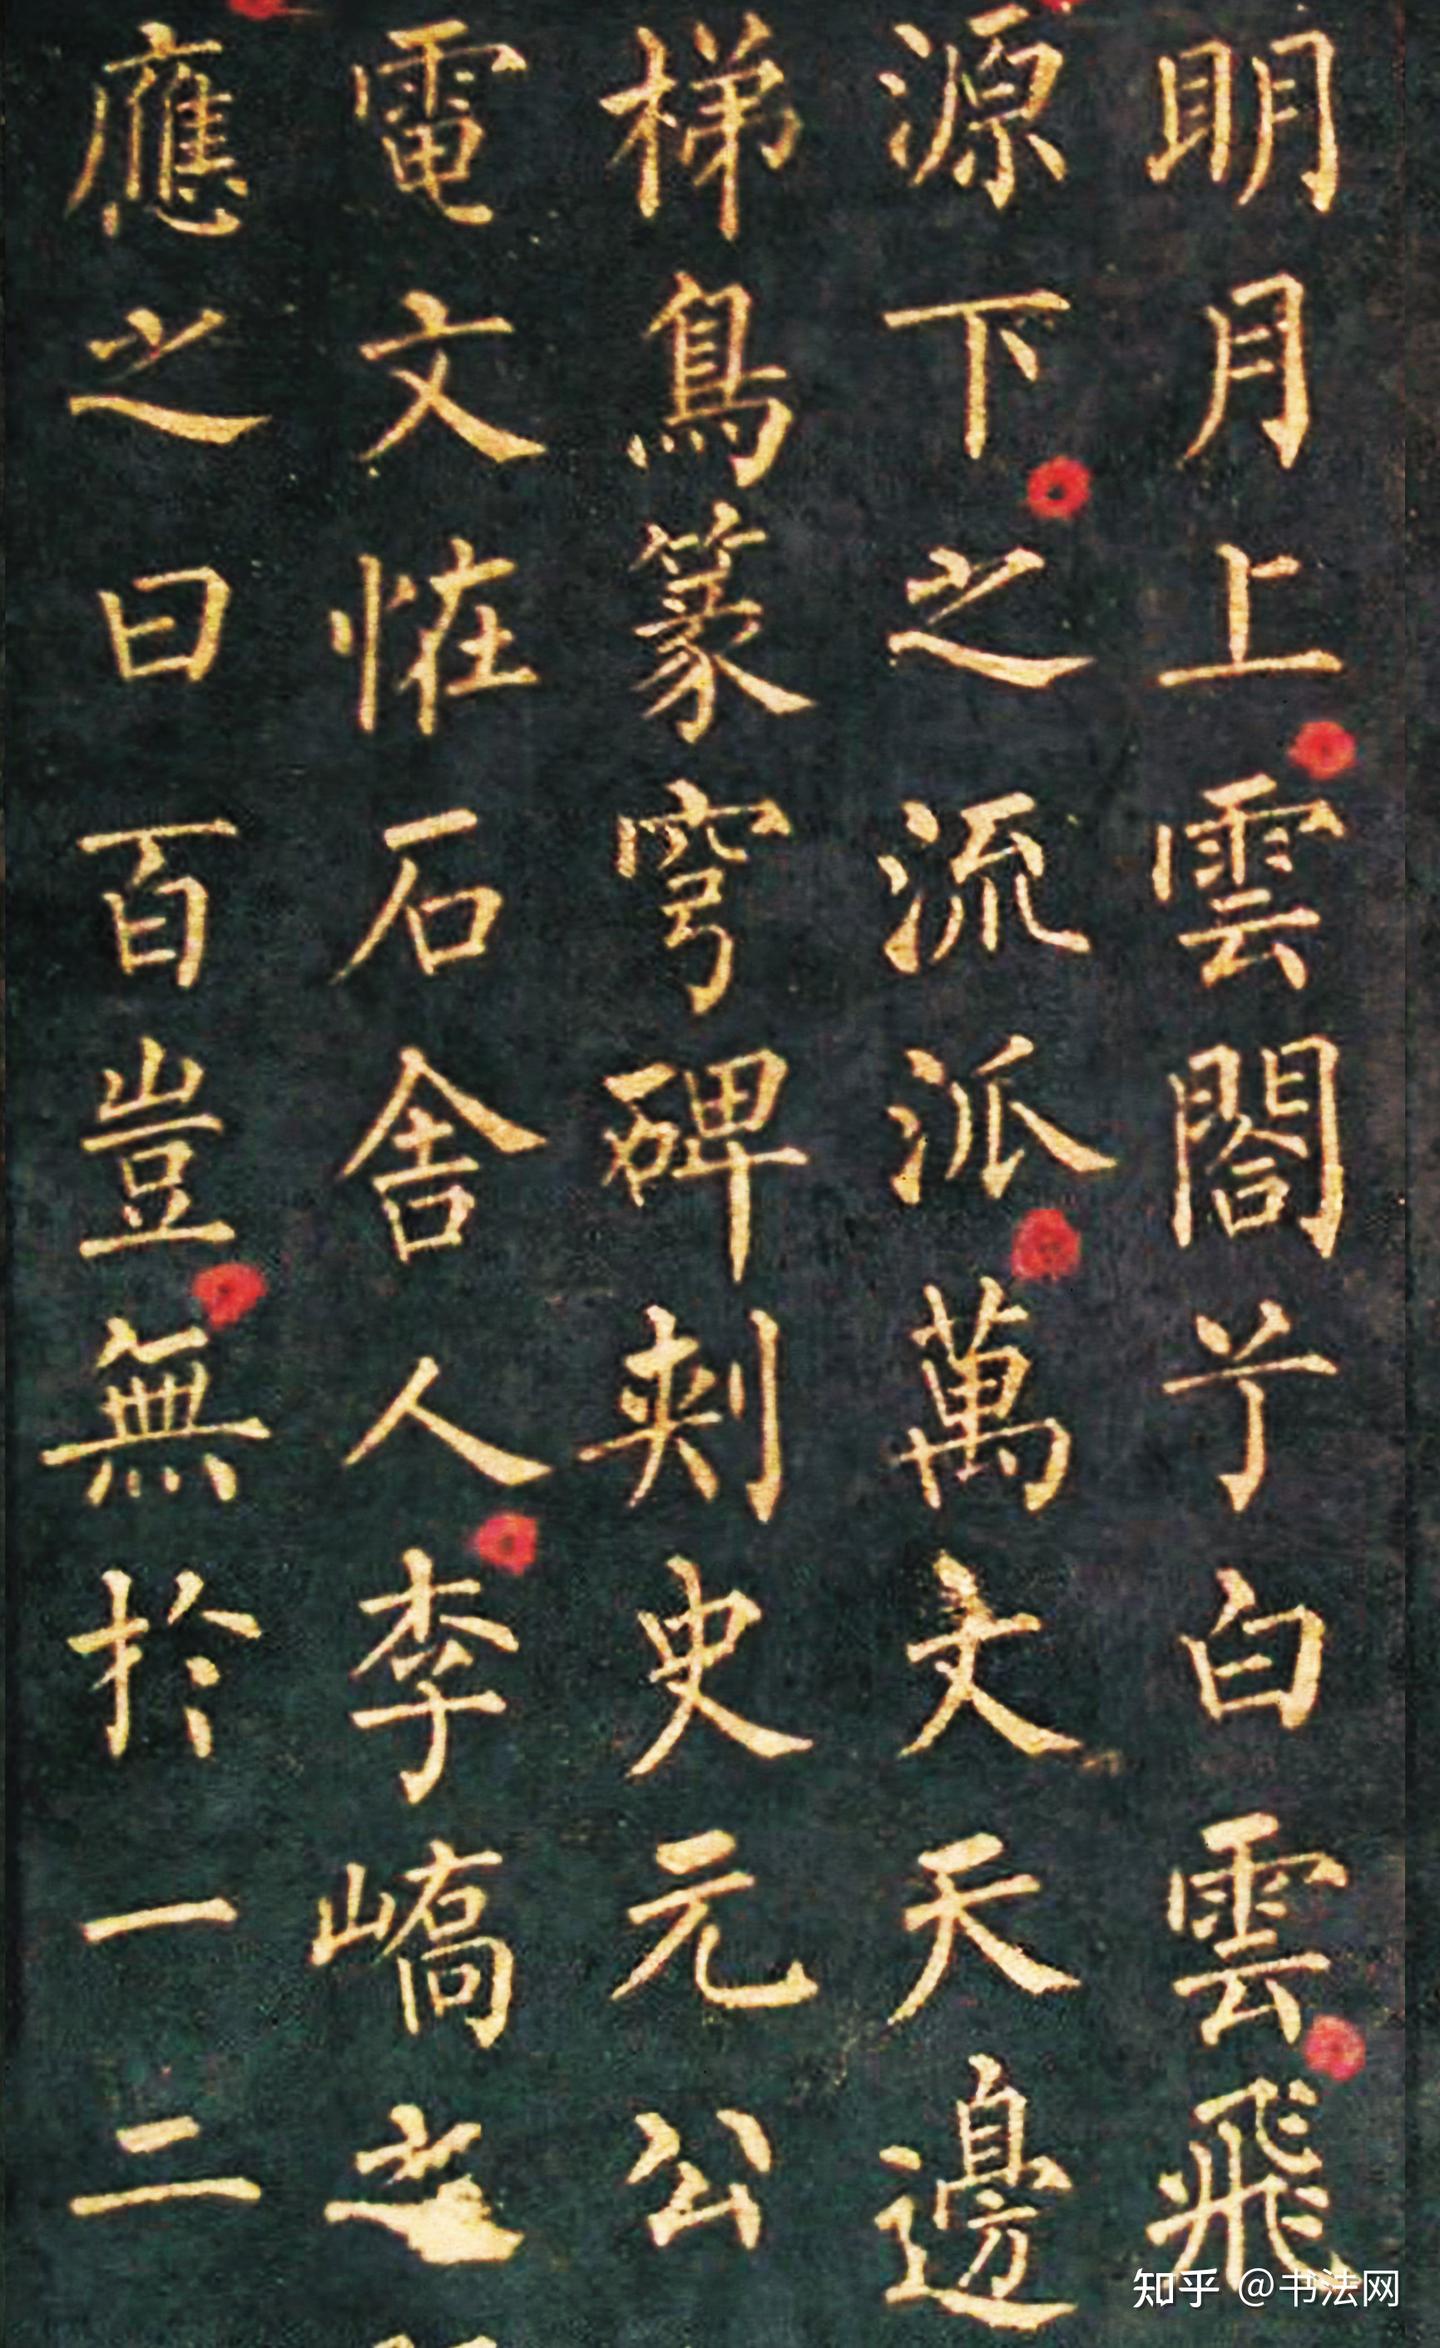 明月上雲閤兮白雲飛
源下之流派萬丈天邊
梯鳥篆穹碑刾史元公
電文恠石舍人李嶠之
應之曰百豈無於一二
知乎 @书法网